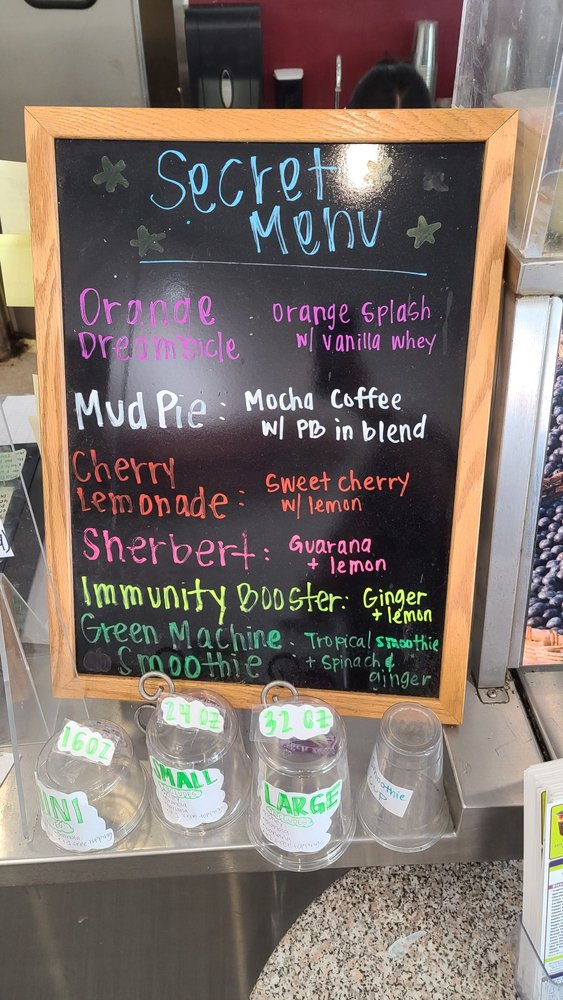 Secret
Menu
Orange
Dreamsicle
Orange Splash
w/ vanilla whey
Mud Pie:
Mocha Coffee
w/ PB in blend
Cherry
Lemonade:
Sweet cherry
w/ lemon
Sherbert:
Guarana
+ lemon
Immunity Booster:
Ginger
+ lemon
Green Machine
Smoothie
Tropical smoothie
+ Spinach &
ginger
16 OZ
24 OZ
SMALL
32 OZ
LARGE
Smoothie